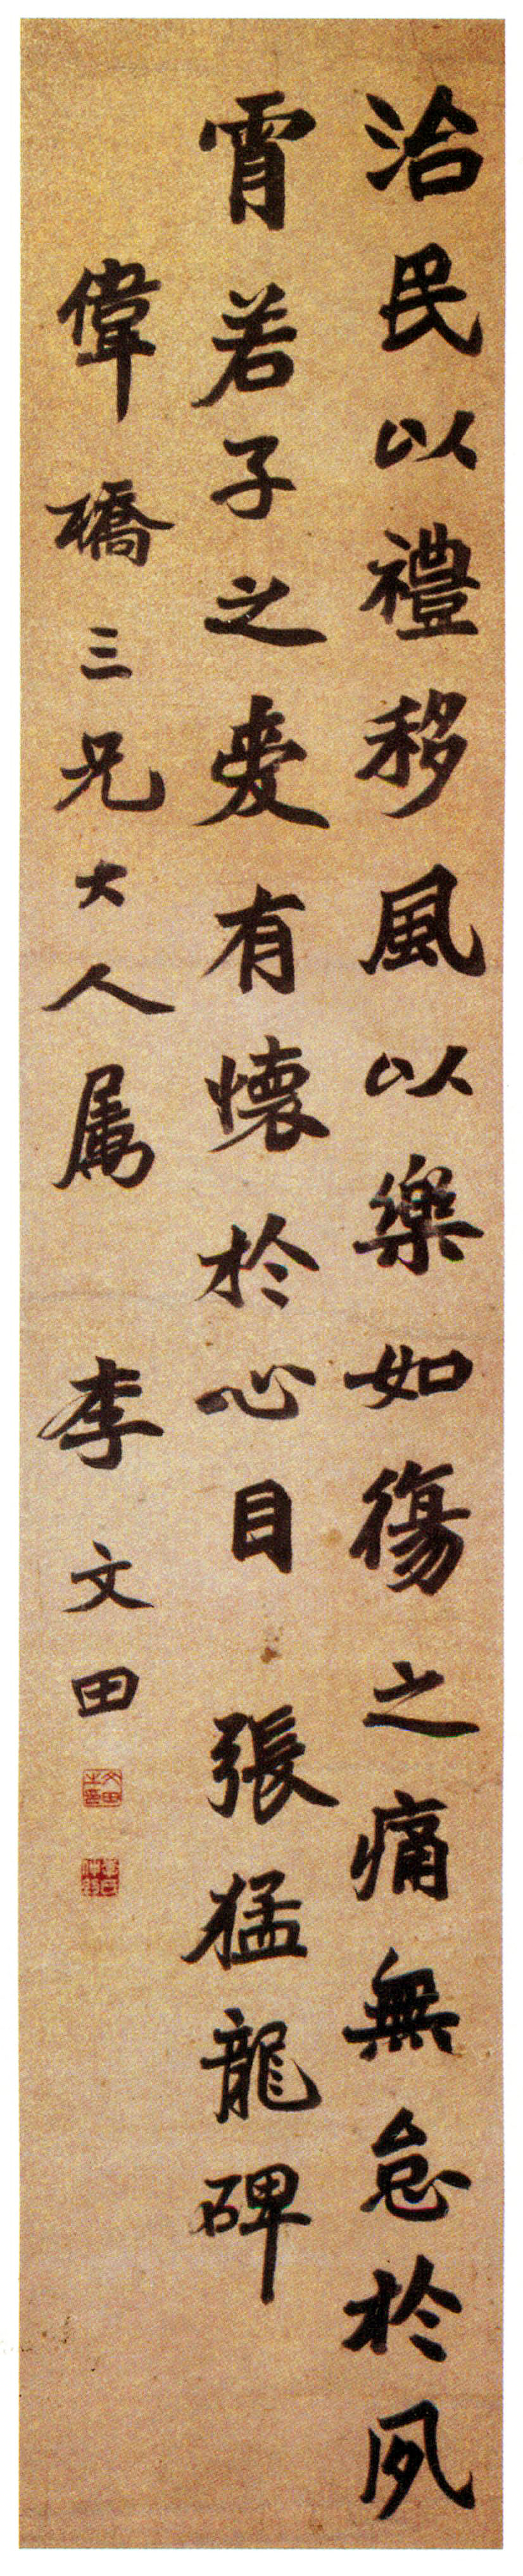 治民以禮移風以樂如傷之痛無怠於夙
宵若子之愛有懷於心目 張猛龍碑
偉橋三兄大人属 李文田